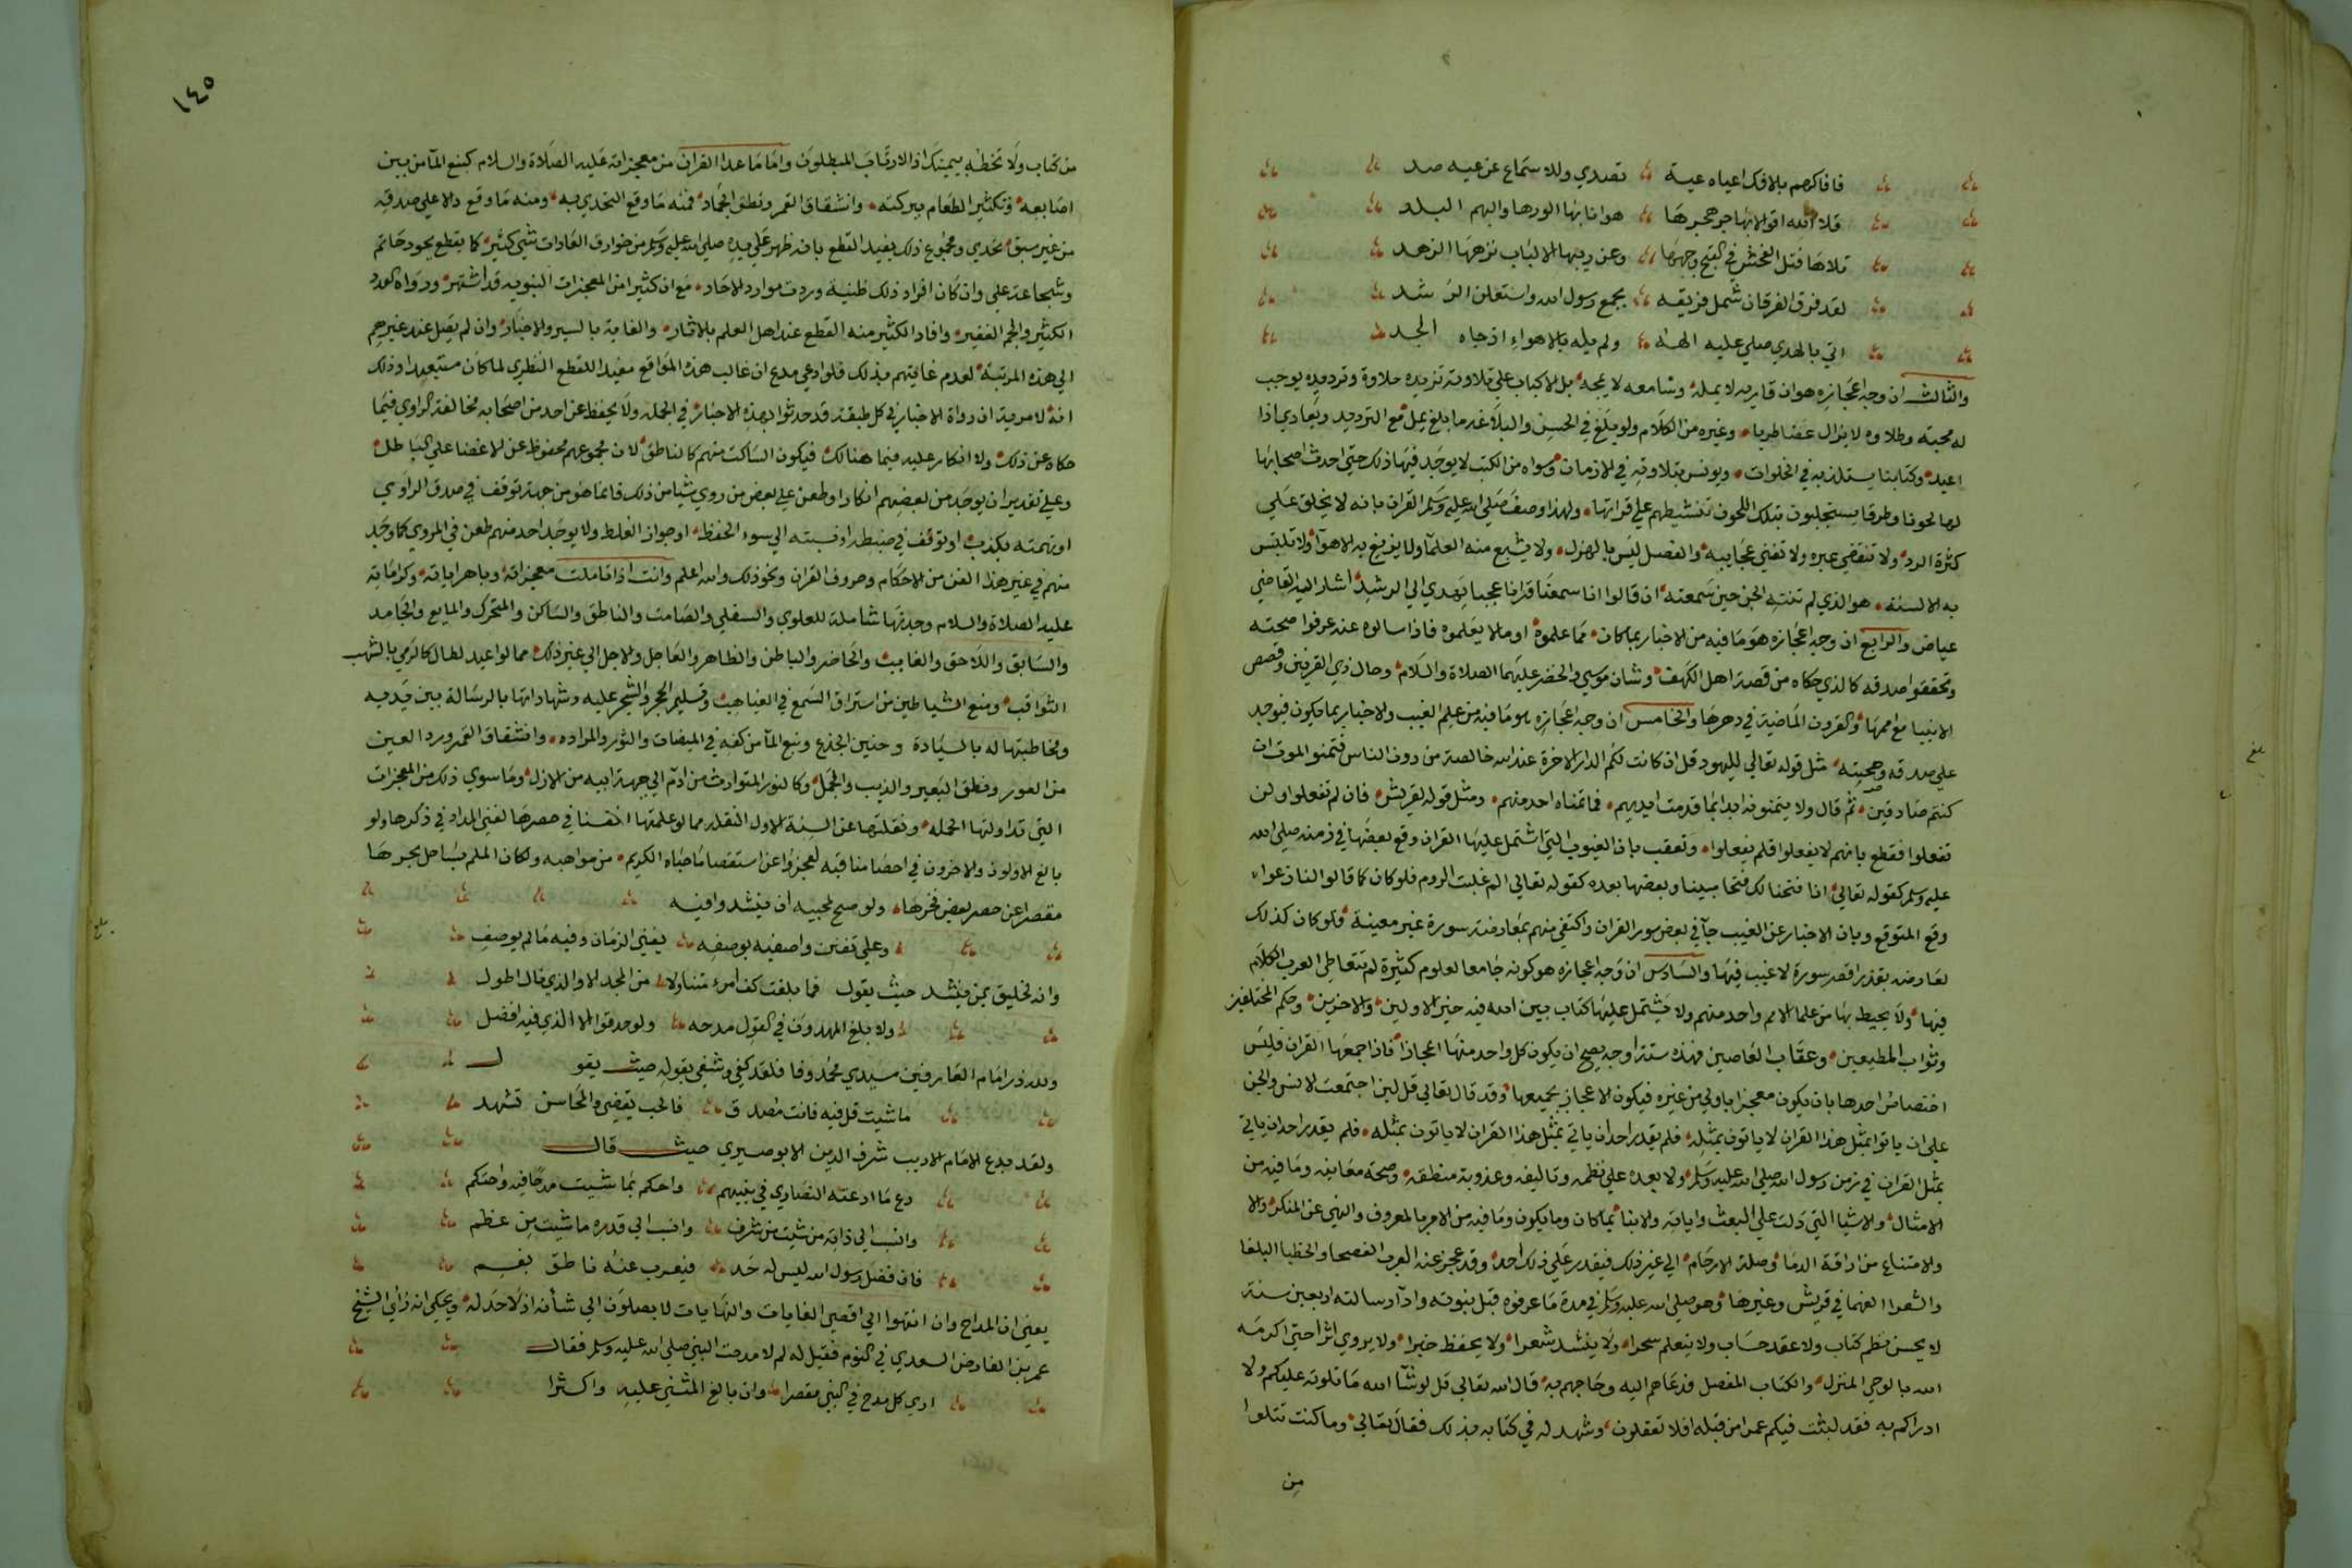 فافاكرهم بالافك اعياه عيه تصدي وللاسماع عن عيه صد
قلا الله اقوالا بها جر هجرها هوانا بها الورها والبهم البلد
تلاها فتل الفحش في القبح وجهها وعن ريبها الالباب نزهها الزهد
لقد فرق الفرقان شمل فريقه بجمع رسول الله واستعلن الرشد
اتي بالهدي صلي عليه الهه ولم يله بالاهواء اذ جاه الجد
والثالث ان وجه اعجازه هو ان قاريه لا يمله وسامعه لا يمجه بل الاكباب علي تلاوته تزيده حلاوة وترديده يوجب
له محبة وطلاوه لا يزال غضا طريا وغيره من الكلام ولو بلغ في الحسن والبلاغه ما بلغ يمل مع الترديد ويعادي اذا
اعيد وكتابنا يستلذ به في الخلوات ويونس بتلاوته في الازمات وسواه من الكتب لا يوجد فيها ذلك حتي احدث اصحابها
لها لحونا وطرقا يستجلبون بتلك اللحون تنشيطهم علي قراتها ولهذا وصف صلي الله عليه وسلم القران بانه لا يخلق علي
كثرة الرد ولا تنقضي عبره ولا تفني عجايبه والفصل ليس بالهزل ولا يشبع منه العلما ولا يزيغ به الاهوا ولا تلتبس
به الالسنة هو الذي لم تنته الجن حين سمعته ان قالوا انا سمعنا قرانا عجبا يهدي الي الرشد اشار اليه القاضي
عياض والرابع ان وجه اعجازه هو ما فيه من الاخبار بما كان مما علموه او ما لا يعلموه فاذا سالوه عنه عرفوا صحته
وتحققوا صدقه كالذي حكاه من قصة اهل الكهف وشان موسي والخضر عليهما الصلاة والسلام وحال ذي القرنين وقصص
الانبيا مع اممها والقرون الماضية في دهرها والخامس ان وجه اعجازه هو ما فيه من علم الغيب والاخبار بما يكون فيوجد
علي صدقه وصحته مثل قوله تعالي لليهود قل ان كانت لكم الدار الاخرة عند الله خالصة من دون الناس فتمنوا الموت ان
كنتم صادقين ثم قال ولا يتمنونه ابدا بما قدمت ايديهم فما تمناه احد منهم ومثل قوله لقريش فان لم تفعلوا ولن
تفعلوا فقطع بانهم لا يفعلوا فلم يفعلوا وتعقب بان الغيوب التي اشتمل عليها القران وقع بعضها في زمنه صلي الله
عليه وسلم كقوله تعالي انا فتحنا لك فتحا مبينا وبعضها بعده كقوله تعالي الم غلبت الروم فلو كان كما قالوا لنازعوا
وقع المتوقع وبان الاخبار عن الغيب جا في بعض سور القران واكتفي منهم بمعارضة سورة غير معينة فلو كان كذلك
لعارضه بقدر اقصر سورة لا غيب فيها والسادس ان وجه اعجازه هو كونه جامعا لعلوم كثيرة لم تتعاطي العرب الكلام
فيها ولا يحيط بها من علما الامم واحد منهم ولا يشتمل عليها كتاب بين الله فيه خبر الاولين والاخرين وحكم المختلفين
وثواب المطيعين وعقاب العاصين فهذه ستة اوجه يصح ان يكون كل واحد منها اعجازا فاذا جمعها القران فليس
اختصاص احدها بان يكون معجزا باولي من غيره فيكون الاعجاز بجميعها وقد قال تعالي قل لين اجتمعت الانس والجن
علي ان ياتوا بمثل هذا القران لا ياتون بمثله فلم يقدر احد ان ياتي بمثل هذا القران لا ياتون بمثله فلم يقدر احد ان ياتي
بمثل القران في زمن رسول الله صلي الله عليه وسلم ولا بعده علي نظمه وتاليفه وعذوبة منطقه وصحة معانيه وما فيه من
الامثال والاشيا التي دلت علي البعث واياته والانبا بما كان وما يكون وما فيه من الامر بالمعروف والنهي عن المنكر والا
والامتناع من اراقة الدما وصلة الارحام الي غير ذلك فيقدر علي ذلك احد وقد عجز عنه العرب الفصحا والخطبا البلغا
والشعرا الفهما في قريش وغيرها وهو صلي الله عليه وسلم في مدة ما عرفوه قبل نبوته وادا رسالته اربعين سنة
لا يحسن نظم كتاب ولا عقد حساب ولا يتعلم سحرا ولا ينشد شعرا ولا يحفظ خبرا ولا يروي اثرا حتي اكرمه
الله بالوحي المنزل والكتاب المفصل فدعاهم اليه وحاجهم به قال الله تعالي قل لو شا الله ما تلوته عليكم ولا
ادراكم به فقد لبثت فيكم عمرا من قبله افلا تعقلون وشهد له في كتابه بذلك فقال تعالي وما كنت تتلوا
من
بلغ
١٤٥
من كتاب ولا تخطه بيمينك اذا لارتاب المبطلون واما ما عدا القران من معجزاته عليه الصلاة والسلام كنبع الما من بين
اصابعه وتكثير الطعام ببركته وانشقاق القمر ونطق الجماد فمنه ما وقع التحدي به ومنه ما وقع دالا علي صدقه
من غير سبق تحدي ومجموع ذلك يفيد القطع بانه ظهر علي يده صلي الله عليه وسلم من خوارق العادات شي كثير كما يقطع بجود حاتم
وشجاعة علي وان كان افراد ذلك ظنية وردت موارد الاحاد مع ان كثيرا من المعجزات النبويه قد اشتهر ورواه العدد
الكثير والجم الغفير وافاد الكثير منه القطع عند اهل العلم بالاثار والغاية بالسير والاخبار وان لم يصل عند غيرهم
الي هذه المرتبة لعدم غايتهم بذلك فلو ادعي مدع ان غالب هذه المواقع مفيد اللقطع النظري لما كان مستبعدا وذلك
انه لا مرية ان رواة الاخبار في كل طبقة قد حدثوا بهذه الاخبار في الجمله ولا يحفظ عن احد من اصحابه مخالفة الراوي فيما
حكاه عن ذلك ولا انكار عليه فيما هنالك فيكون الساكت منهم كالناطق لان مجموعهم محفوظ عن الاغضا علي الباطل
وعلي تقدير ان يوجد من بعضهم انكار او طعن علي بعض من روي شيا من ذلك فانما هو من جهة توقف في صدق الراوي
او تهمته بكذب او توقف في ضبطه او نسبته الي سوء الحفظ او جواز الغلط ولا يوجد احد منهم طعن في المروي كما وجد
منهم في غير هذا الفن من الاحكام وحروف القران ونحو ذلك والله اعلم وانت اذا تاملت معجزاته وباهر اياته وكراماته
عليه الصلاة والسلام وجدتها شاملة للعلوي والسفلي والصامت والناطق والساكن والمتحرك والمايع والجامد
والسابق واللاحق والغايب والحاضر والباطن والظاهر والعاجل والاجل الي غير ذلك مما لو اعيد لطال كالرمي بالشهب
الثواقب ومنع الشياطين من استراق السمع في الغياهب وتسليم الحجر والشجر عليه وشهاداتها بالرسالة بين يديه
ومخاطبتها له بالسيادة وحنين الجذع ونبع الما من كفه في الميضات والثور والمزاده وانشقاق القمر ورد العين
من العور ونطق البعير والذيب والجمل وكالنور المتوارث من ادم الي جبهة ابيه من الازل وما سوي ذلك من المعجزات
التي تداولتها الحمله ونقلتها عن السنة الاول النقله مما لو علمتها انفسنا في حصرها لفني المداد في ذكرها ولو
بالغ الاولون والاخرون في احصا مناقبه لعجزوا عن استقصا ما حباه الكريم من مواهبه ولكان الملم بساحل بحرها
مقصرا عن حصر بعض فخرها ولو صح لمحبيه ان ينشدوا فيه
وعلي تفنن واصفيه بوصفه يفني الزمان وفيه ما لم يوصف
وانه لخليق بمن ينشد حيث يقول فما بلغت كف امرء متناولا من المجد الا والذي نال اطول
ولا بلغ المهدون في القول مدحه ولو حدقوا الا الذي فيه افضل
ولله در امام العارفين سيدي محمد وفا فلقد كفي وشفي بقوله حيث يقول
ما شيت قل فيه فانت مصدق فالحب يقضي والمحاسن تشهد
ولقد بدع الامام الاديب شرف الدين الابوصيري حيث قال
دع ما ادعته النصاري في نبيهم واحكم بما شيت مدحا فيه واحتكم
وانسب الي ذاته من شيت من شرف وانسب الي قدره ما شيت من عظم
فان فضل رسول الله ليس له حد فيعرب عنه ناطق بفم
يعني ان المداح وان انتهوا الي اقصي الغايات والنهايات لا يصلون الي شأنه اذ لا حد له ويحكي انه رأي الشيخ
عمر بن الفارض السعدي في النوم فقيل له لم لا مدحت النبي صلي الله عليه وسلم فقال
اري كل مدح في النبي مقصرا وان بالغ المثني عليه واكثرا
بلغ